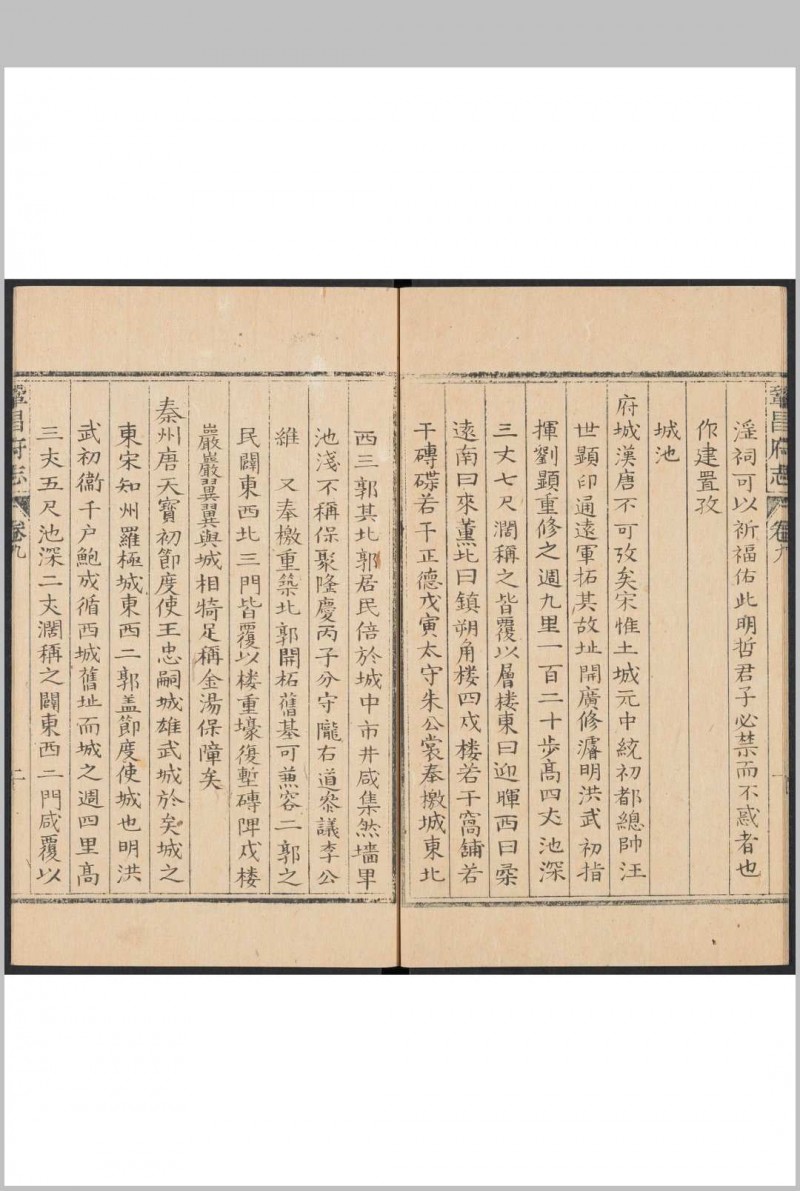 鞏昌府志 卷九
淫祠可以祈福佑此明哲君子必禁而不惑者也
作建置攷
城池
府城漢唐不可攷矣宋惟土城元中統初都總帥汪
世顕印通遠軍拓其故址開廣修濬明洪武初指
揮劉顕重修之週九里一百二十步髙四丈池深
三丈七尺濶稱之皆覆以層楼東曰迎暉西曰
遠南曰來薰北曰鎮朔角楼四戍楼若干窩舖若
干磚碟若干正德戊寅太守朱公裳奉檄城東北
西三郭其北郭居民倍於城中市井咸集然墻卑
池淺不稱保聚隆慶丙子分守隴右道叅議李公
維 又奉檄重築北郭開柘舊基可兼容二郭之
民闢東西北三門皆覆以楼重壕復塹磚陴戍楼
巖巖翼翼與城相犄足稱金湯保障矣
秦州唐天寶初節度使王忠嗣城雄武城於矣城之
東宋知州羅極城東西二郭盖節度使城也明洪
武初衞千户鮑成循西城舊址而城之週四里髙
三丈五尺池深二丈濶稱之闢東西二門咸覆以
鞏昌府志 卷九 二